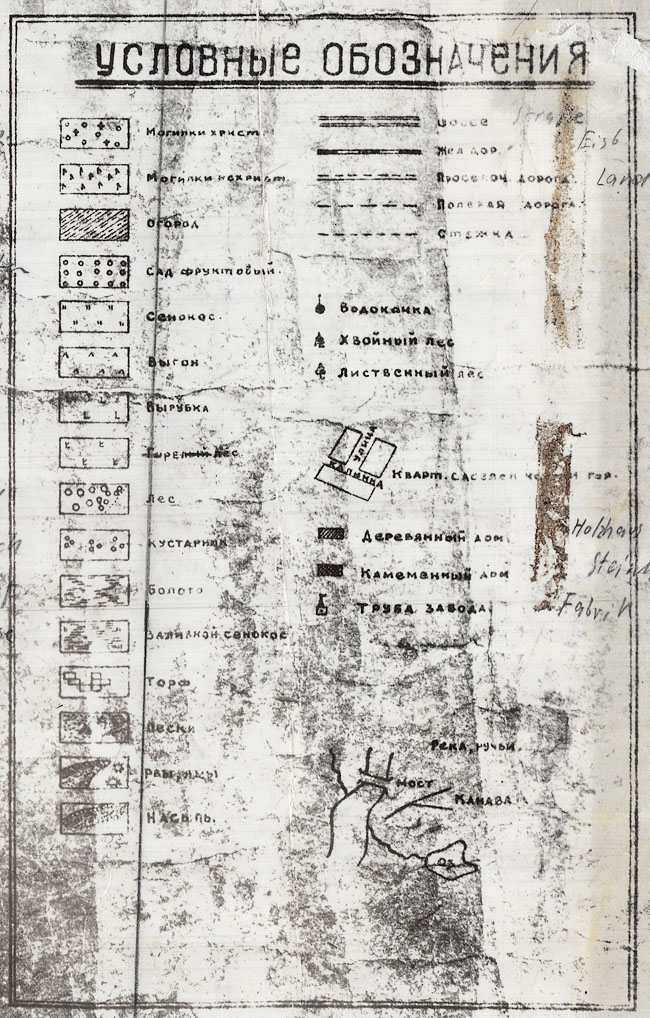 УСЛОВНЫЕ ОБОЗНАЧЕНИЯ
Могилки христ.
Могилки нехрист.
Огород
Сад фруктовый.
Сенокос.
Выгон
Вырубка
Горелый лес
Лес
Кустарник
Болото
Заливной сенокос
Торф
Пески
Рвы, ямы
Насыпь.
Шоссе
Жел дор.
Проселоч. дорога.
Полевая дорога.
Стежка
Водокачка
Хвойный лес
Лиственный лес
УЛИЦА
КАЛИНИНА
Кварт.
гор.
Деревянный дом.
Каменный дом
Труба завода.
Река, ручьи.
мост
Канава
Оз.
Straße
Eisb
Land
Holzhaus
Stein
Fabrik